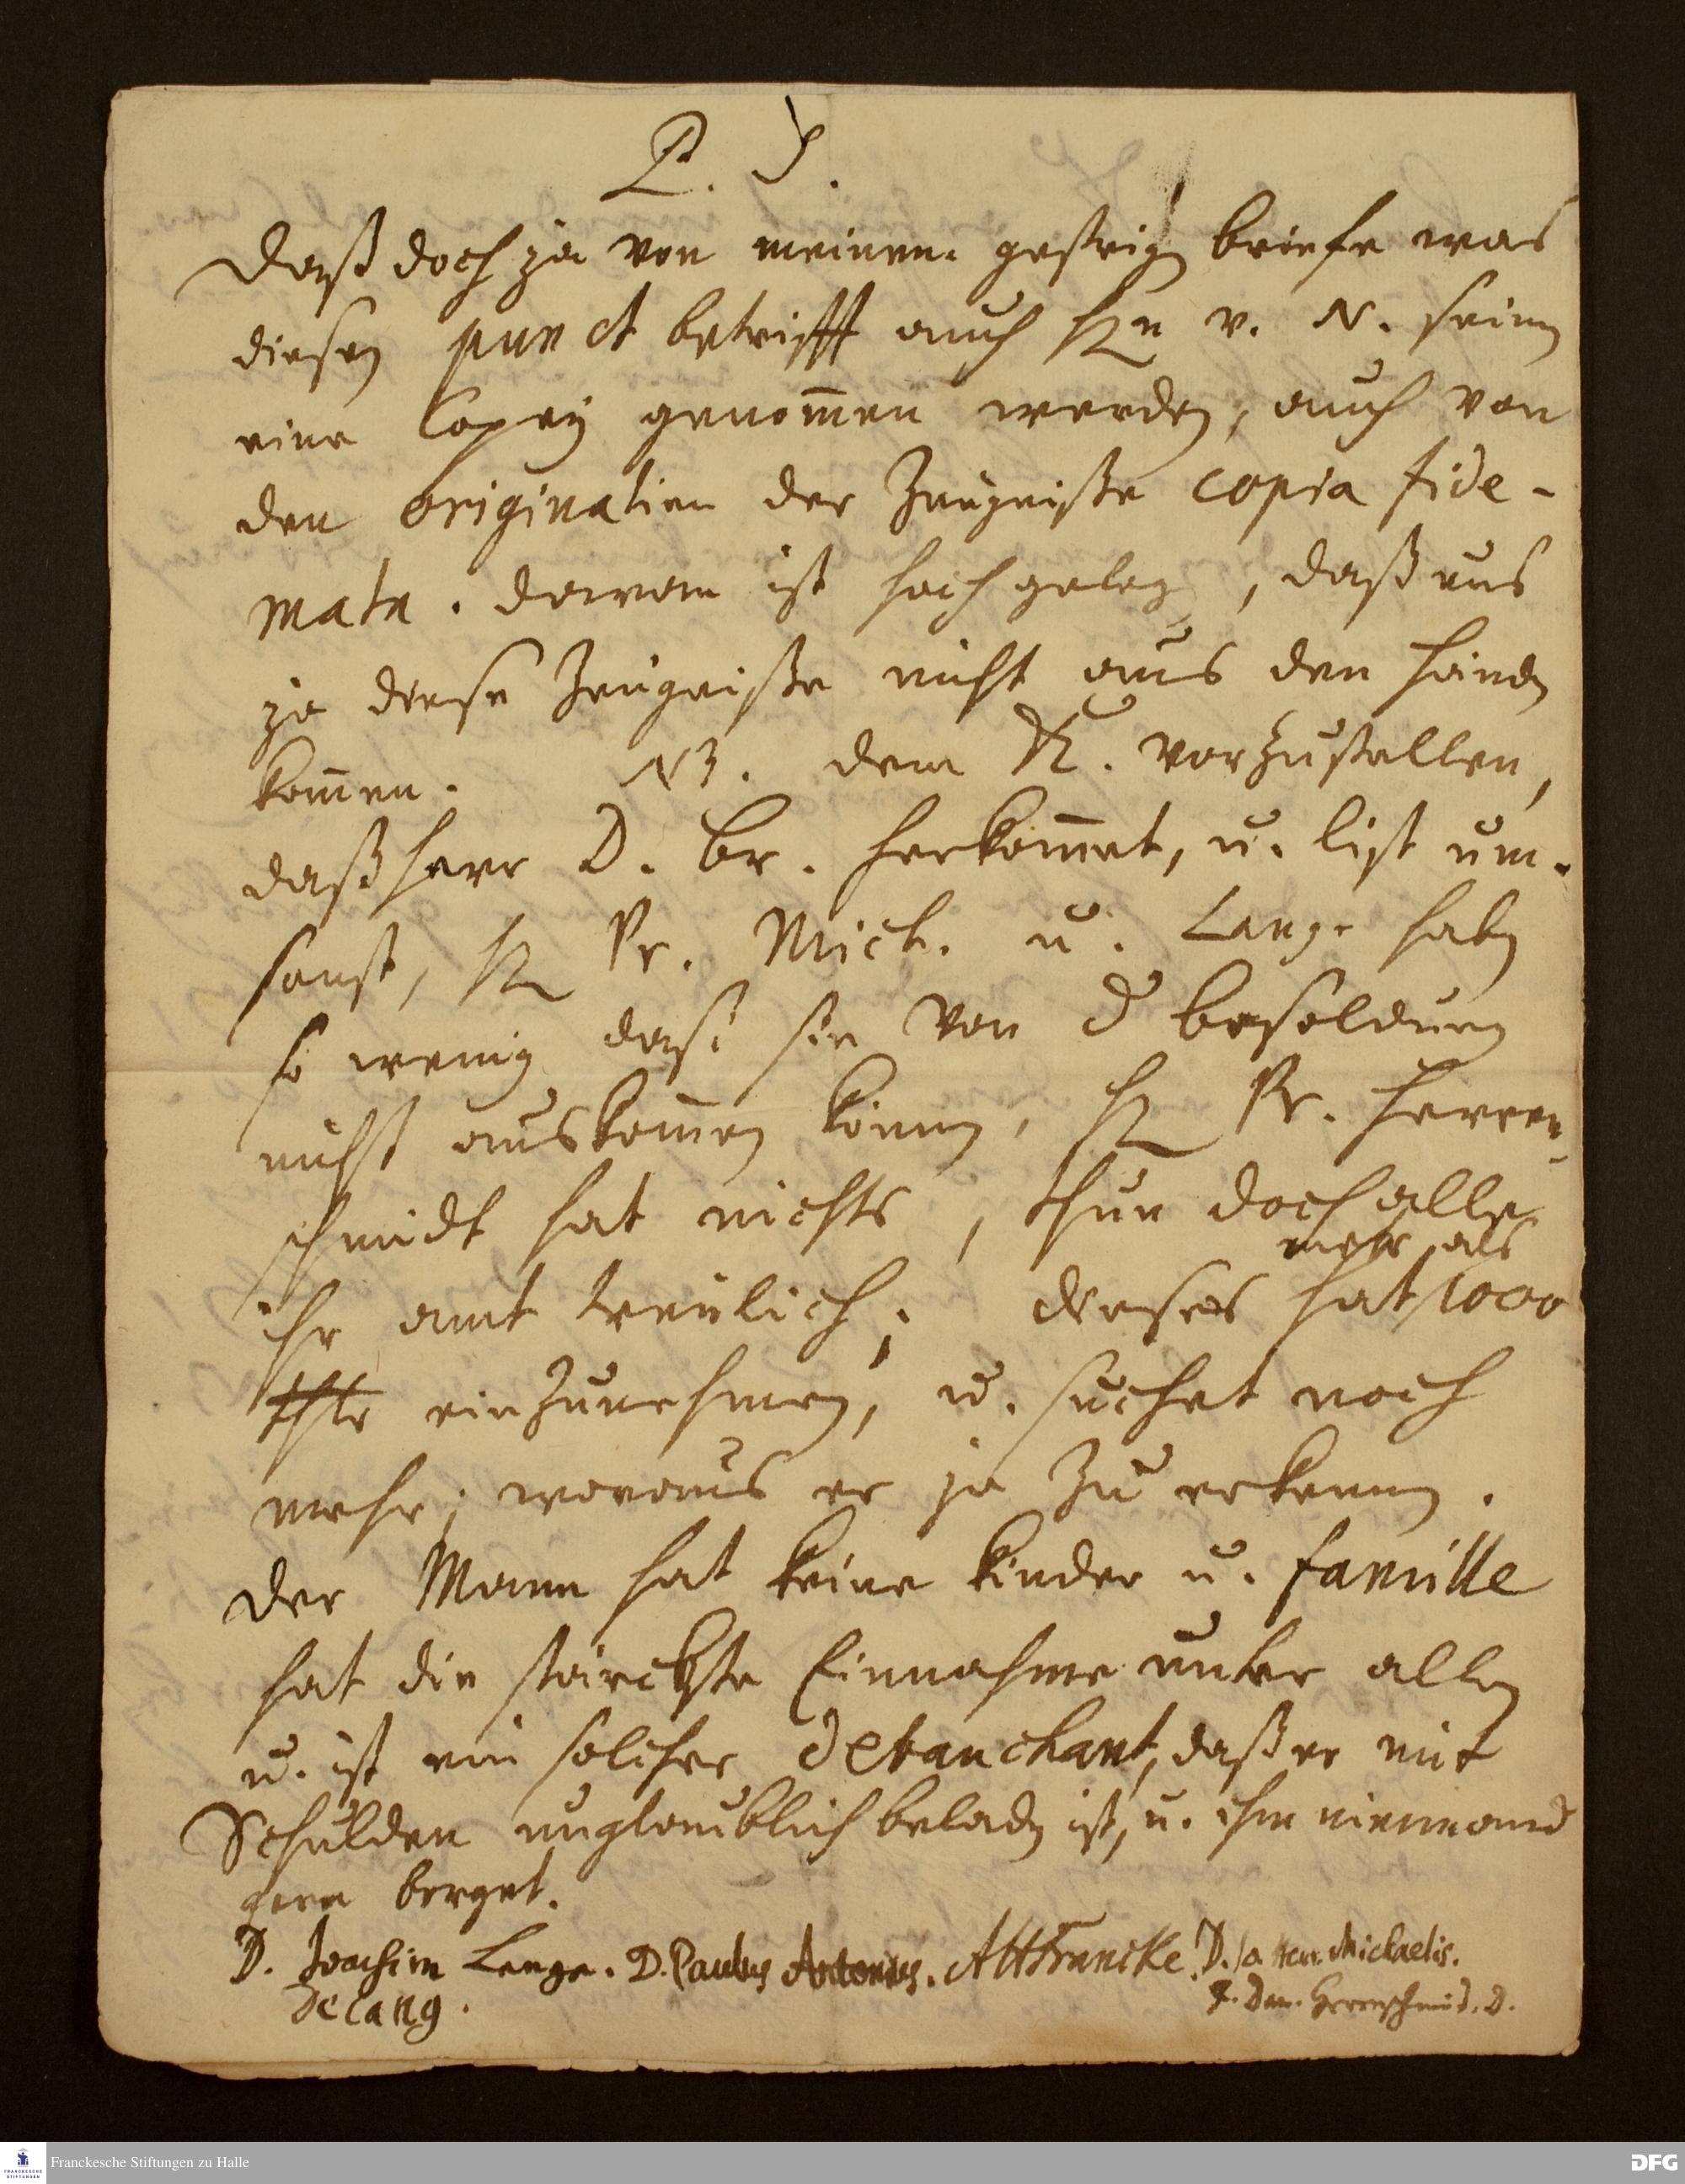 P. S.
Daß doch ja von meinem gestrig briefe was
diesen punct betrifft auch Hn v. N. seinen
eine Copey genommen werden, auch von
den originalien der Zeugniße copia fide-
mata. daran ist hoch geleg, daß uns
ja diese Zeugniße nicht aus den händen
kommen. NB. dem K. vorzustellen,
daß Herr D. Br. herkommet, u. list um-
sonst, H Pr. Mich. u. Lange haben
so wenig daß sie von d besoldung
nicht auskommen können, H Pr. Herren-
schmidt hat nichts, thun doch alle
ihr amt treulich; dieser hat mehr als 1000
thlr einzunehmen, u. suchet noch
mehr; woraus er ja zu erkennen.
Der Mann hat keine Kinder u. famille
hat die stärckste Einnahme unter allen
u. ist ein solcher debauchant, daß er mit
Schulden unglaublich beladen ist, u. ihm niemand
gern borget.
D. Joachim Lange. D. Paulus Antonius. AHFrancke. D. Jo. Henr. Michaelis.
Decanq. J. Dan. Herrnschmid. D.
Franckesche Stiftungen zu Halle
DFG